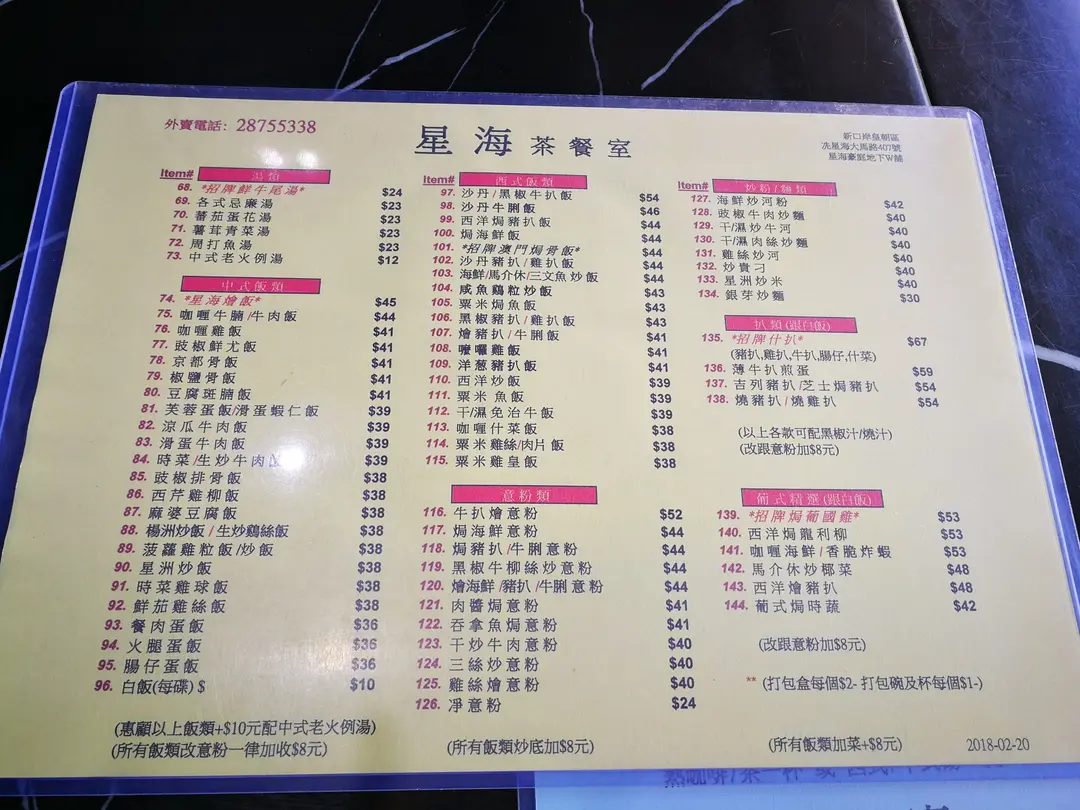 外賣電話: 28755338
星海茶餐室
新口岸皇朝區
冼星海大馬路407號
星海豪庭地下W舖
Item# 湯類
68. *招牌鮮牛尾湯* $24
69. 各式忌廉湯 $23
70. 蕃茄蛋花湯 $23
71. 薯茸青菜湯 $23
72. 周打魚湯 $23
73. 中式老火例湯 $12
中式飯類
74. *星海燴飯* $45
75. 咖喱牛腩/牛肉飯 $44
76. 咖喱雞飯 $41
77. 豉椒鮮尤飯 $41
78. 京都骨飯 $41
79. 椒鹽骨飯 $41
80. 豆腐斑腩飯 $41
81. 芙蓉蛋飯/滑蛋蝦仁飯 $39
82. 涼瓜牛肉飯 $39
83. 滑蛋牛肉飯 $39
84. 時菜/生炒牛肉飯 $39
85. 豉椒排骨飯 $38
86. 西芹雞柳飯 $38
87. 麻婆豆腐飯 $38
88. 楊洲炒飯/生炒鷄絲飯 $38
89. 菠蘿雞粒飯/炒飯 $38
90. 星洲炒飯 $38
91. 時菜雞球飯 $38
92. 鮮茄雞絲飯 $38
93. 餐肉蛋飯 $36
94. 火腿蛋飯 $36
95. 腸仔蛋飯 $36
96. 白飯(每碟) $ $10
(惠顧以上飯類+$10元配中式老火例湯)
(所有飯類改意粉一律加收$8元)
Item# 西式飯類
97. 沙丹/黑椒牛扒飯 $54
98. 沙丹牛脷飯 $46
99. 西洋焗豬扒飯 $44
100. 焗海鮮飯 $44
101. *招牌澳門焗骨飯* $44
102. 沙丹豬扒/雞扒飯 $44
103. 海鮮/馬介休/三文魚炒飯 $44
104. 咸魚鷄粒炒飯 $43
105. 粟米焗魚飯 $43
106. 黑椒豬扒/雞扒飯 $43
107. 燴豬扒/牛脷飯 $41
108. 嚤囉雞飯 $41
109. 洋葱豬扒飯 $41
110. 西洋炒飯 $39
111. 粟米魚飯 $39
112. 干/濕免治牛飯 $39
113. 咖喱什菜飯 $38
114. 粟米雞絲/肉片飯 $38
115. 粟米雞皇飯 $38
意粉類
116. 牛扒燴意粉 $52
117. 焗海鮮意粉 $44
118. 焗豬扒/牛脷意粉 $44
119. 黑椒牛柳絲炒意粉 $44
120. 燴海鮮/豬扒/牛脷意粉 $44
121. 肉醬焗意粉 $41
122. 吞拿魚焗意粉 $41
123. 干炒牛肉意粉 $40
124. 三絲炒意粉 $40
125. 雞絲燴意粉 $40
126. 凈意粉 $24
(所有飯類炒底加$8元)
Item# 炒粉/麵類
127. 海鮮炒河粉 $42
128. 豉椒牛肉炒麵 $40
129. 干/濕炒牛河 $40
130. 干/濕肉絲炒麵 $40
131. 雞絲炒河 $40
132. 炒貴刁 $40
133. 星洲炒米 $40
134. 銀芽炒麵 $30
扒類(跟白飯)
135. *招牌什扒* $67
(豬扒,雞扒,牛扒,腸仔,什菜)
136. 薄牛扒煎蛋 $59
137. 吉列豬扒/芝士焗豬扒 $54
138. 燒豬扒/燒雞扒 $54
(以上各款可配黑椒汁/燒汁)
(改跟意粉加$8元)
葡式精選(跟白飯)
139. *招牌焗葡國雞* $53
140. 西洋焗龍利柳 $53
141. 咖喱海鮮/香脆炸蝦 $53
142. 馬介休炒椰菜 $48
143. 西洋燴豬扒 $48
144. 葡式焗時蔬 $42
(改跟意粉加$8元)
** (打包盒每個$2- 打包碗及杯每個$1-)
(所有飯類加菜+$8元)
2018-02-20